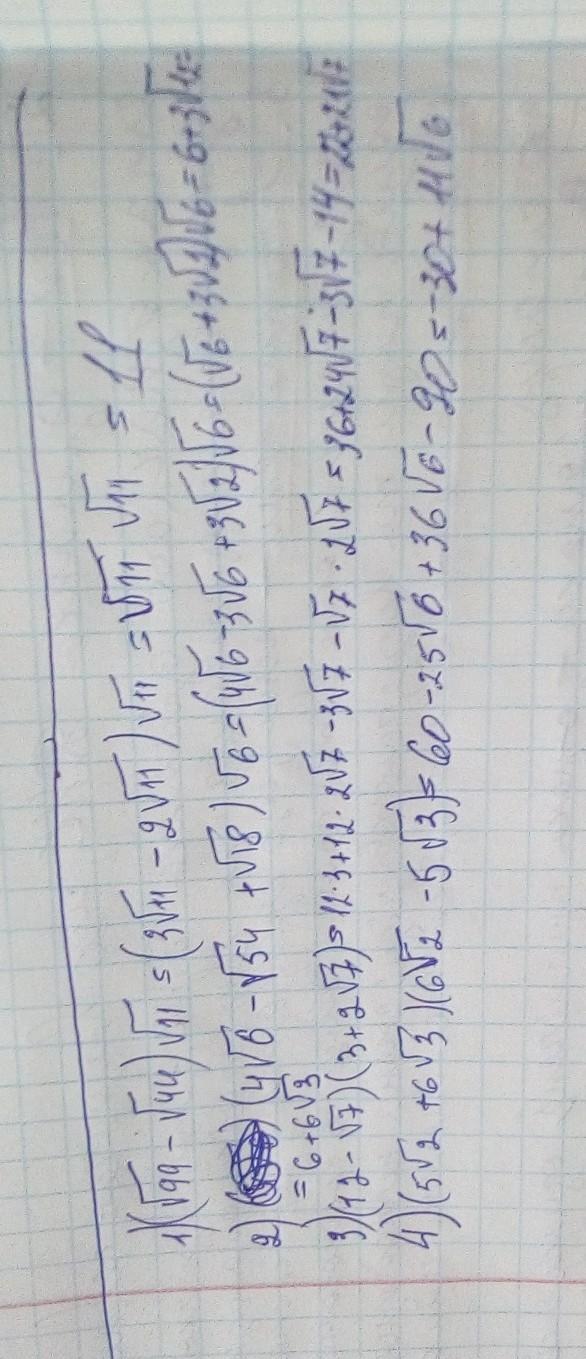 1)(√99 - √44)√11 = (3√11 - 2√11)√11 = √11 √11 = 11
2) (4√6 - √54 + √18)√6 = (4√6 - 3√6 + 3√2)√6 = (√6 + 3√2)√6 = 6 + 3√12 =
= 6 + 6√3
3)(12 - √7)(3 + 2√7) = 12·3 + 12·2√7 - 3√7 - √7·2√7 = 36 + 24√7 - 3√7 - 14 = 22 + 21√7
4)(5√2 + 6√3)(6√2 - 5√3) = 60 - 25√6 + 36√6 - 90 = -30 + 11√6